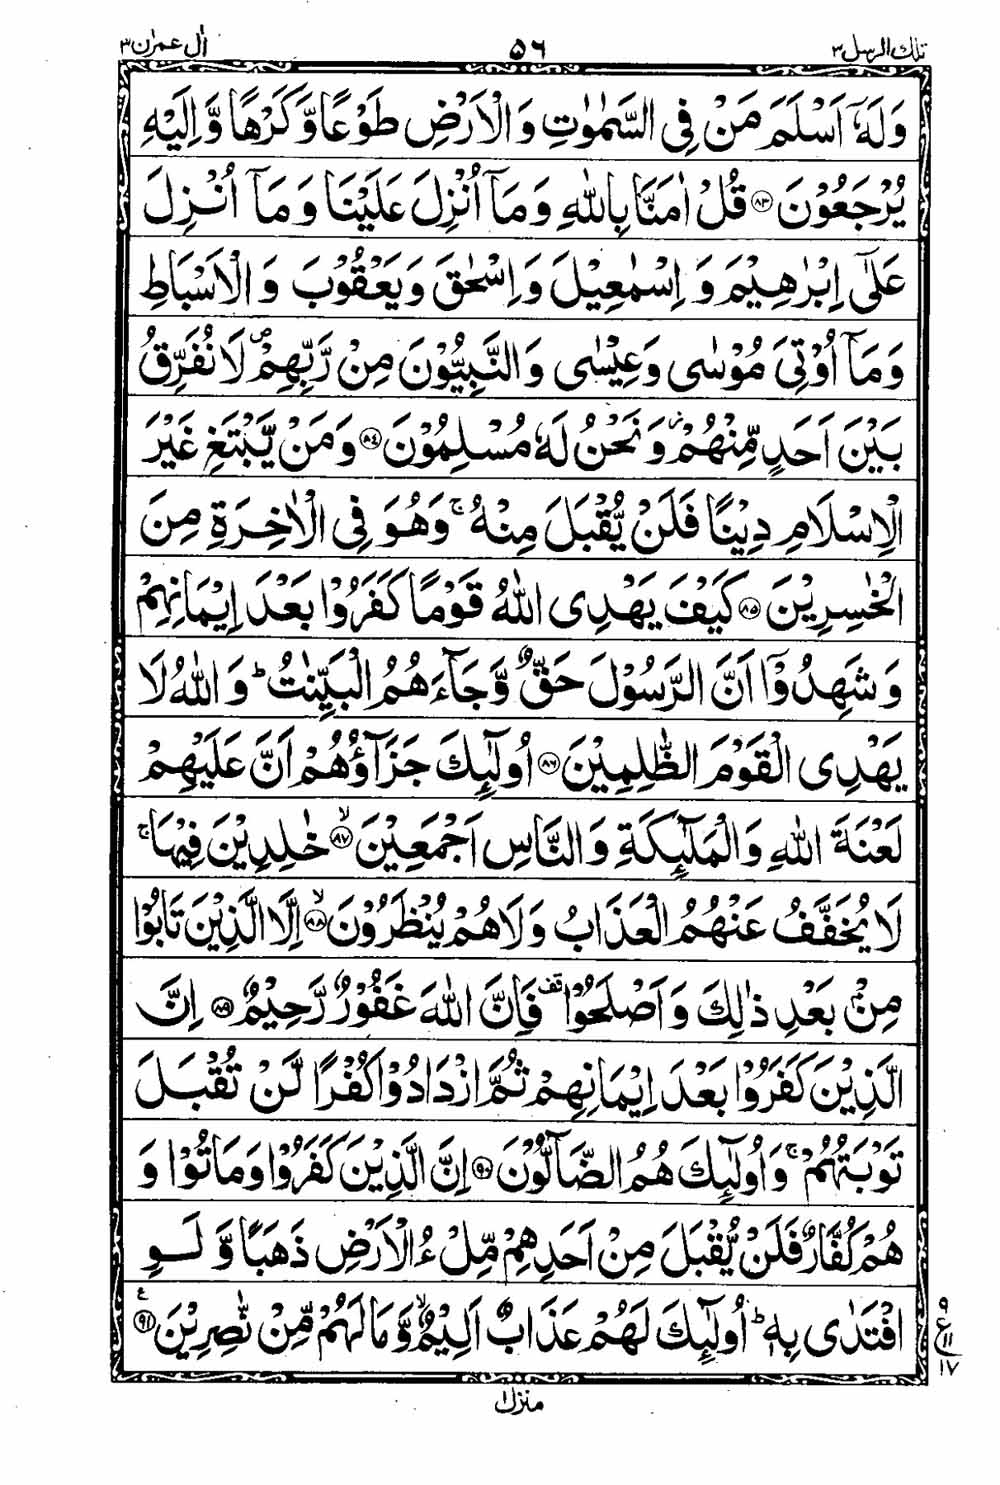 تلك الرسل ٣ ٥٦ اٰل عمرٰن ٣
وَلَهٗٓ اَسْلَمَ مَنْ فِى السَّمٰوٰتِ وَالْاَرْضِ طَوْعًا وَّكَرْهًا وَّاِلَيْهِ
يُرْجَعُوْنَ ﴿۸۳﴾ قُلْ اٰمَنَّا بِاللّٰهِ وَمَآ اُنْزِلَ عَلَيْنَا وَمَآ اُنْزِلَ
عَلٰٓى اِبْرٰهِيْمَ وَاِسْمٰعِيْلَ وَاِسْحٰقَ وَيَعْقُوْبَ وَالْاَسْبَاطِ
وَمَآ اُوْتِىَ مُوْسٰى وَعِيْسٰى وَالنَّبِيُّوْنَ مِنْ رَّبِّهِمْ ۖ لَا نُفَرِّقُ
بَيْنَ اَحَدٍ مِّنْهُمْ ؗ وَنَحْنُ لَهٗ مُسْلِمُوْنَ ﴿۸۴﴾ وَمَنْ يَّبْتَغِ غَيْرَ
الْاِسْلَامِ دِيْنًا فَلَنْ يُّقْبَلَ مِنْهُ ۚ وَهُوَ فِى الْاٰخِرَةِ مِنَ
الْخٰسِرِيْنَ ﴿۸۵﴾ كَيْفَ يَهْدِى اللّٰهُ قَوْمًا كَفَرُوْا بَعْدَ اِيْمَانِهِمْ
وَشَهِدُوْٓا اَنَّ الرَّسُوْلَ حَقٌّ وَّجَآءَهُمُ الْبَيِّنٰتُ ؕ وَاللّٰهُ لَا
يَهْدِى الْقَوْمَ الظّٰلِمِيْنَ ﴿۸۶﴾ اُولٰٓئِكَ جَزَآؤُهُمْ اَنَّ عَلَيْهِمْ
لَعْنَةَ اللّٰهِ وَالْمَلٰٓئِكَةِ وَالنَّاسِ اَجْمَعِيْنَ ۙ﴿۸۷﴾ خٰلِدِيْنَ فِيْهَا ۚ
لَا يُخَفَّفُ عَنْهُمُ الْعَذَابُ وَلَا هُمْ يُنْظَرُوْنَ ۙ﴿۸۸﴾ اِلَّا الَّذِيْنَ تَابُوْا
مِنْۢ بَعْدِ ذٰلِكَ وَاَصْلَحُوْا قف فَاِنَّ اللّٰهَ غَفُوْرٌ رَّحِيْمٌ ﴿۸۹﴾ اِنَّ
الَّذِيْنَ كَفَرُوْا بَعْدَ اِيْمَانِهِمْ ثُمَّ ازْدَادُوْا كُفْرًا لَّنْ تُقْبَلَ
تَوْبَتُهُمْ ۚ وَاُولٰٓئِكَ هُمُ الضَّآلُّوْنَ ﴿۹۰﴾ اِنَّ الَّذِيْنَ كَفَرُوْا وَمَاتُوْا وَ
هُمْ كُفَّارٌ فَلَنْ يُّقْبَلَ مِنْ اَحَدِهِمْ مِّلْءُ الْاَرْضِ ذَهَبًا وَّلَوِ
افْتَدٰى بِهٖ ؕ اُولٰٓئِكَ لَهُمْ عَذَابٌ اَلِيْمٌ ۙ وَّمَا لَهُمْ مِّنْ نّٰصِرِيْنَ ﴿۹۱﴾ ع
۹
ع ۱۱
۱۷
منزل ۱